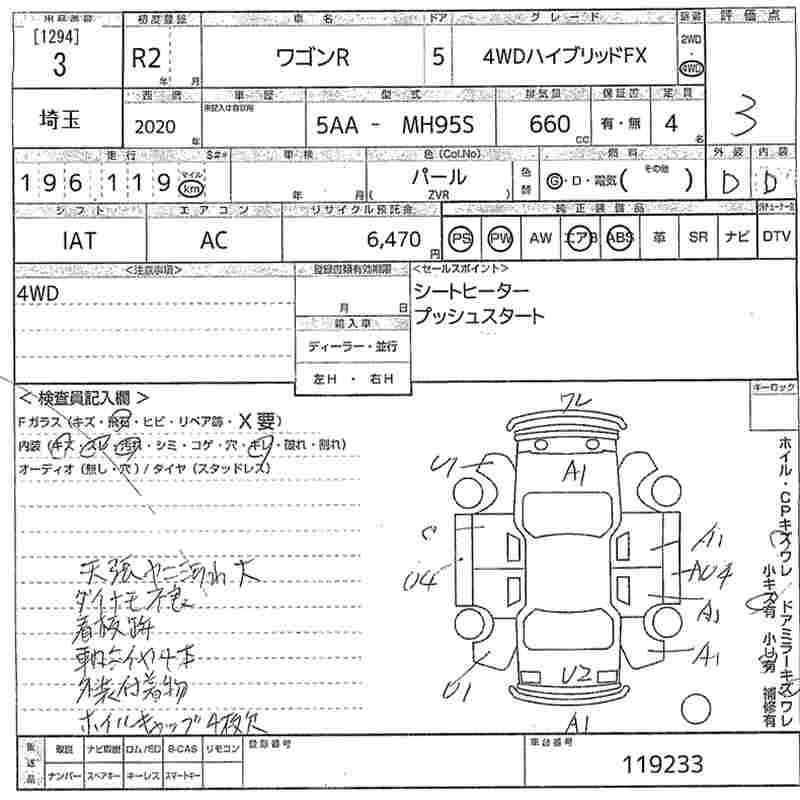 [1294]
初度登録 車名 ドア グレード 評価点
3 R2 年 月 ワゴンR 5 4WDハイブリッドFX 2WD・4WD 3
埼玉 車歴 型式 排気量 定員
2020 年 5AA - MH95S 660 CC 有・無 4 名
走行 車検 色(Col.No) 燃料 外装 内装
196119 マイル km 年 月 パール ( ZVR ) 色替 G・D・電気( その他 ) D D
シフト エアコン リサイクル預託金 純正装備品
IAT AC 6,470 円 PS PW AW エアB ABS 革 SR ナビ DTV
<注意事項> 登録書類有効期限 <セールスポイント>
4WD 月 日 シートヒーター
プッシュスタート
輸入車
ディーラー・並行
左H ・ 右H
< 検査員記入欄 > キーロック
Fガラス(キズ・飛石・ヒビ・リペア跡・X要)
内装(キズ・・汚れ・シミ・コゲ・穴・キレ・破れ・割れ)
オーディオ(無し・穴)/タイヤ(スタッドレス)
天張ヤニ汚れ大
ダイナモ不良
看板跡
外装付着物
ホイルキャップ4枚欠
ワレ
A1
U1
C
U4
U1
A1
A1
U2
A1
ホイル・CPキズワレ ドアミラーキズワレ
小キズ有 補修有
取説 ナビ取説 ロム/SD B-CAS リモコン 登録番号 車台番号
ナンバー スペアキー キーレス スマートキー 119233